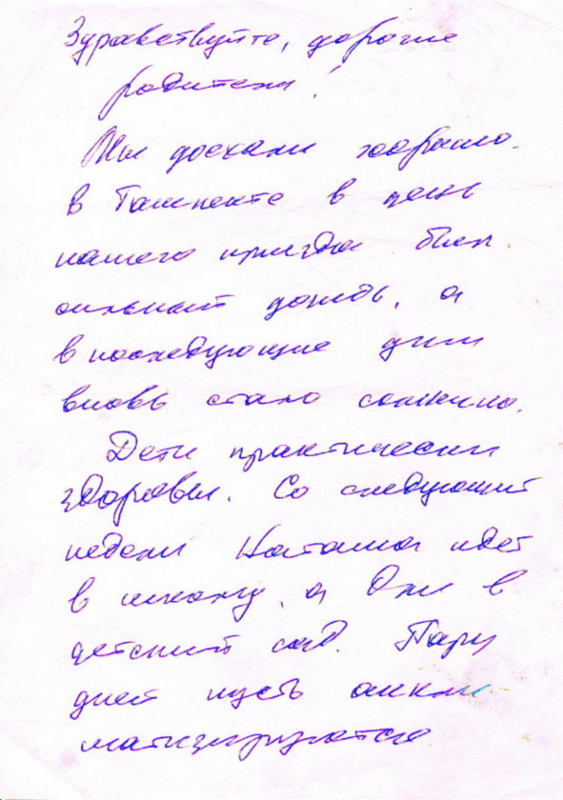 Здравствуйте, дорогие
родители!
Мы доехали хорошо.
в Ташкенте в день
нашего приезда был
сильный дождь, а
в последующие дни
вновь стало солнечно.
Дети практически
здоровы. Со следующей
недели Наташа идет
в школу, а Оля в
детский сад. Пару
дней пусть аккли
матизируются